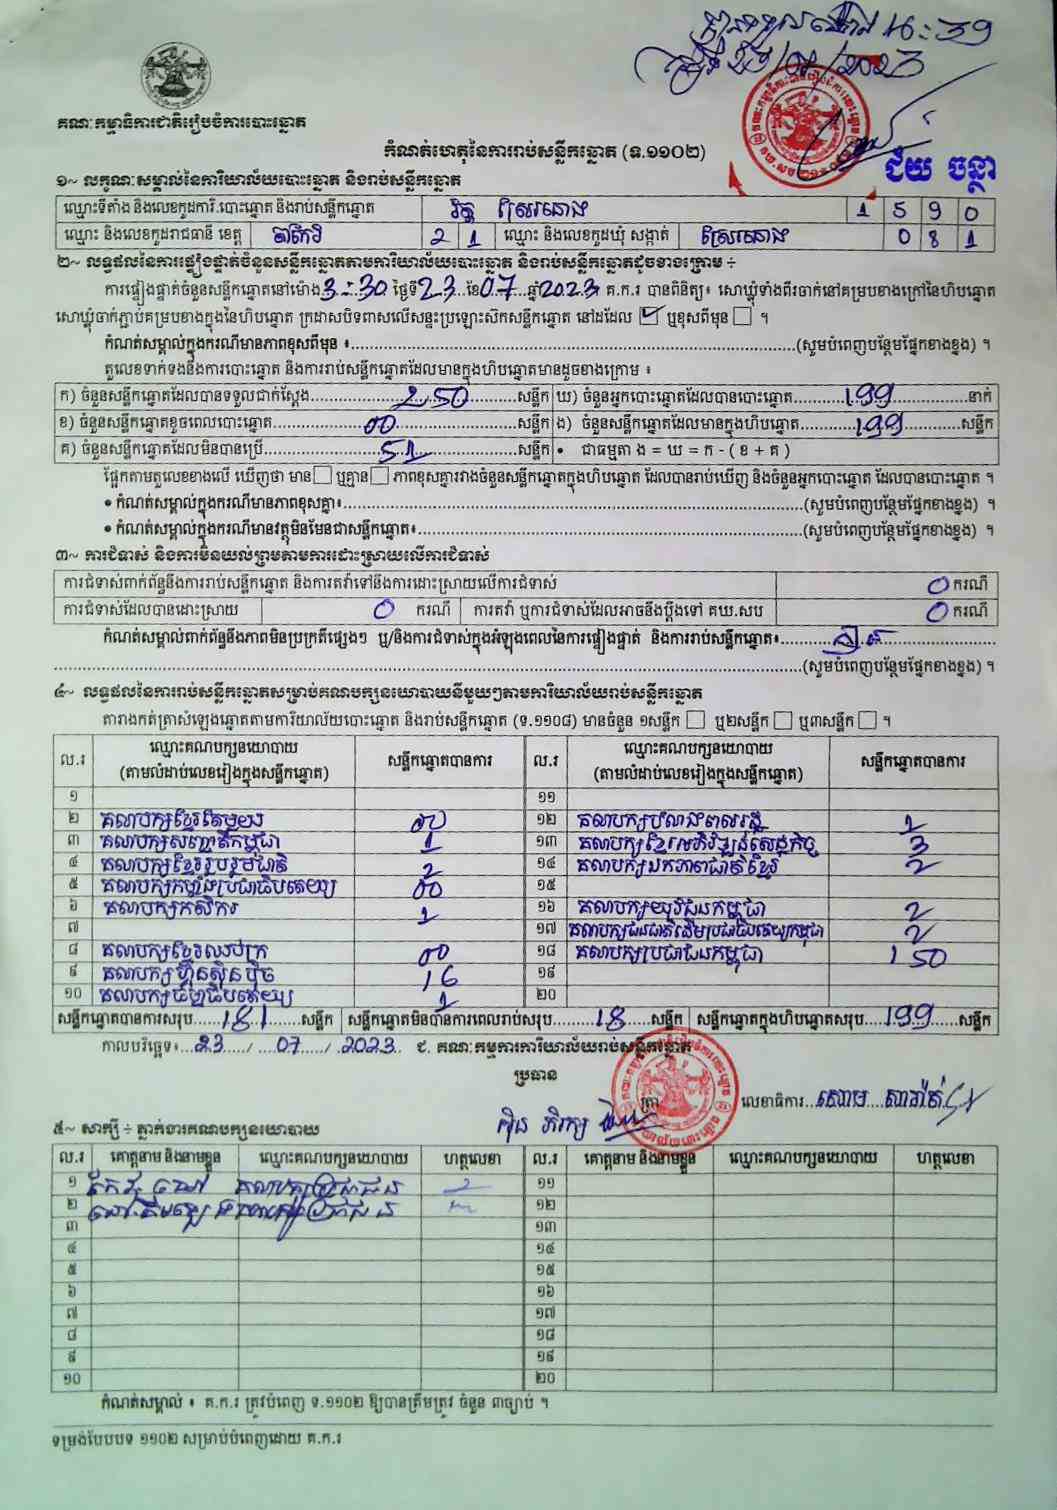 16:39
23/07/2023
គណៈកម្មាធិការជាតិរៀបចំការបោះឆ្នោត
កំណត់ហេតុនៃការរាប់សន្លឹកឆ្នោត (ទ.១១០២)
ជ័យ ចន្ថា
១~ លក្ខណៈសម្គាល់នៃការិយាល័យបោះឆ្នោត និងរាប់សន្លឹកឆ្នោត
ឈ្មោះទីតាំង និងលេខកូដការិ.បោះឆ្នោត និងរាប់សន្លឹកឆ្នោត 1 5 9 0
ឈ្មោះ និងលេខកូដរាជធានី ខេត្ត តាកែវ 2 1 ឈ្មោះ និងលេខកូដឃុំ សង្កាត់ ស្រែរនោង 0 8 1
២~ លទ្ធផលនៃការផ្ទៀងផ្ទាត់ចំនួនសន្លឹកឆ្នោតតាមការិយាល័យបោះឆ្នោត និងរាប់សន្លឹកឆ្នោតដូចខាងក្រោម ÷
ការផ្ទៀងផ្ទាត់ចំនួនសន្លឹកឆ្នោតនៅម៉ោង 3:30 ថ្ងៃទី 23 ខែ 07 ឆ្នាំ 2023 គ.ក.រ បានពិនិត្យ៖ សោឃ្លុំទាំងពីរចាក់នៅគម្របខាងក្រៅនៃហិបឆ្នោត
សោឃ្លុំចាក់ភ្ជាប់គម្របខាងក្នុងនៃហិបឆ្នោត ក្រដាសបិទពាសលើសន្ទះប្រឡោះស៊កសន្លឹកឆ្នោត នៅដដែល ☑ ឬខុសពីមុន ☐ ។
កំណត់សម្គាល់ក្នុងករណីមានភាពខុសពីមុន ៖ (សូមបំពេញបន្ថែមផ្នែកខាងខ្នង) ។
តួលេខទាក់ទងនឹងការបោះឆ្នោត និងការរាប់សន្លឹកឆ្នោតដែលមានក្នុងហិបឆ្នោតមានដូចខាងក្រោម ៖
ក) ចំនួនសន្លឹកឆ្នោតដែលបានទទួលជាក់ស្តែង 250 សន្លឹក ឃ) ចំនួនអ្នកបោះឆ្នោតដែលបានបោះឆ្នោត 199 នាក់
ខ) ចំនួនសន្លឹកឆ្នោតខូចពេលបោះឆ្នោត 00 សន្លឹក ង) ចំនួនសន្លឹកឆ្នោតដែលមានក្នុងហិបឆ្នោត 199 សន្លឹក
គ) ចំនួនសន្លឹកឆ្នោតដែលមិនបានប្រើ 51 សន្លឹក • ជាធម្មតា ង = ឃ = ក - ( ខ + គ )
ផ្អែកតាមតួលេខខាងលើ ឃើញថា មាន ☐ ឬគ្មាន ☐ ភាពខុសគ្នារវាងចំនួនសន្លឹកឆ្នោតក្នុងហិបឆ្នោត ដែលបានរាប់ឃើញ និងចំនួនអ្នកបោះឆ្នោត ដែលបានបោះឆ្នោត ។
• កំណត់សម្គាល់ក្នុងករណីមានភាពខុសគ្នា៖ (សូមបំពេញបន្ថែមផ្នែកខាងខ្នង) ។
• កំណត់សម្គាល់ក្នុងករណីមានវត្ថុមិនមែនជាសន្លឹកឆ្នោត៖ (សូមបំពេញបន្ថែមផ្នែកខាងខ្នង) ។
៣~ ការជំទាស់ និងការមិនយល់ព្រមតាមការដោះស្រាយលើការជំទាស់
ការជំទាស់ពាក់ព័ន្ធនឹងការរាប់សន្លឹកឆ្នោត និងការតវ៉ាទៅនឹងការដោះស្រាយលើការជំទាស់ 0 ករណី
ការជំទាស់ដែលបានដោះស្រាយ 0 ករណី ការតវ៉ា ឬការជំទាស់ដែលអាចនឹងប្តឹងទៅ គឃ.សប 0 ករណី
កំណត់សម្គាល់ពាក់ព័ន្ធនឹងភាពមិនប្រក្រតីផ្សេងៗ ឬ/និងការជំទាស់ក្នុងអំឡុងពេលនៃការផ្ទៀងផ្ទាត់ និងការរាប់សន្លឹកឆ្នោត៖
(សូមបំពេញបន្ថែមផ្នែកខាងខ្នង) ។
៤~ លទ្ធផលនៃការរាប់សន្លឹកឆ្នោតសម្រាប់គណបក្សនយោបាយនីមួយៗតាមការិយាល័យរាប់សន្លឹកឆ្នោត
តារាងកត់ត្រាសំឡេងឆ្នោតតាមការិយាល័យបោះឆ្នោត និងរាប់សន្លឹកឆ្នោត (ទ.១១០៨) មានចំនួន ១សន្លឹក ☐ ឬ២សន្លឹក ☐ ឬ៣សន្លឹក ☐ ។
ល.រ ឈ្មោះគណបក្សនយោបាយ (តាមលំដាប់លេខរៀងក្នុងសន្លឹកឆ្នោត) សន្លឹកឆ្នោតបានការ ល.រ ឈ្មោះគណបក្សនយោបាយ (តាមលំដាប់លេខរៀងក្នុងសន្លឹកឆ្នោត) សន្លឹកឆ្នោតបានការ
១ ១១
២ គណបក្សខ្មែរតែមួយ 00 ១២ 1
៣ គណបក្សសញ្ជាតិកម្ពុជា 1 ១៣ គណបក្សខ្មែរអភិវឌ្ឍន៍សេដ្ឋកិច្ច 3
៤ គណបក្សខ្មែររួបរួមជាតិ 2 ១៤ គណបក្សឯកភាពជាតិខ្មែរ 2
៥ គណបក្សកម្លាំងប្រជាធិបតេយ្យ 00 ១៥
៦ គណបក្សកសិករ 1 ១៦ គណបក្សយុវជនកម្ពុជា 2
៧ ១៧ គណបក្សជនជាតិដើមប្រជាធិបតេយ្យកម្ពុជា 2
៨ គណបក្សខ្មែរឈប់ក្រ 00 ១៨ គណបក្សប្រជាជនកម្ពុជា 150
៩ គណបក្សហ៊្វុនស៊ិនប៉ិច 16 ១៩
១០ គណបក្សធម្មាធិបតេយ្យ 1 ២០
សន្លឹកឆ្នោតបានការសរុប 181 សន្លឹក សន្លឹកឆ្នោតមិនបានការពេលរាប់សរុប 18 សន្លឹក សន្លឹកឆ្នោតក្នុងហិបឆ្នោតសរុប 199 សន្លឹក
កាលបរិច្ឆេទ៖ 23 / 07 / 2023 ជ. គណៈកម្មការការិយាល័យរាប់សន្លឹកឆ្នោត
ប្រធាន
ត្រា លេខាធិការ
៥~ សាក្សី ÷ ភ្នាក់ងារគណបក្សនយោបាយ
ល.រ គោត្តនាម និងនាមខ្លួន ឈ្មោះគណបក្សនយោបាយ ហត្ថលេខា ល.រ គោត្តនាម និងនាមខ្លួន ឈ្មោះគណបក្សនយោបាយ ហត្ថលេខា
១ ១១
២ ១២
៣ ១៣
៤ ១៤
៥ ១៥
៦ ១៦
៧ ១៧
៨ ១៨
៩ ១៩
១០ ២០
កំណត់សម្គាល់ ៖ គ.ក.រ ត្រូវបំពេញ ទ.១១០២ ឱ្យបានត្រឹមត្រូវ ចំនួន ៣ច្បាប់ ។
ទម្រង់បែបបទ ១១០២ សម្រាប់បំពេញដោយ គ.ក.រ